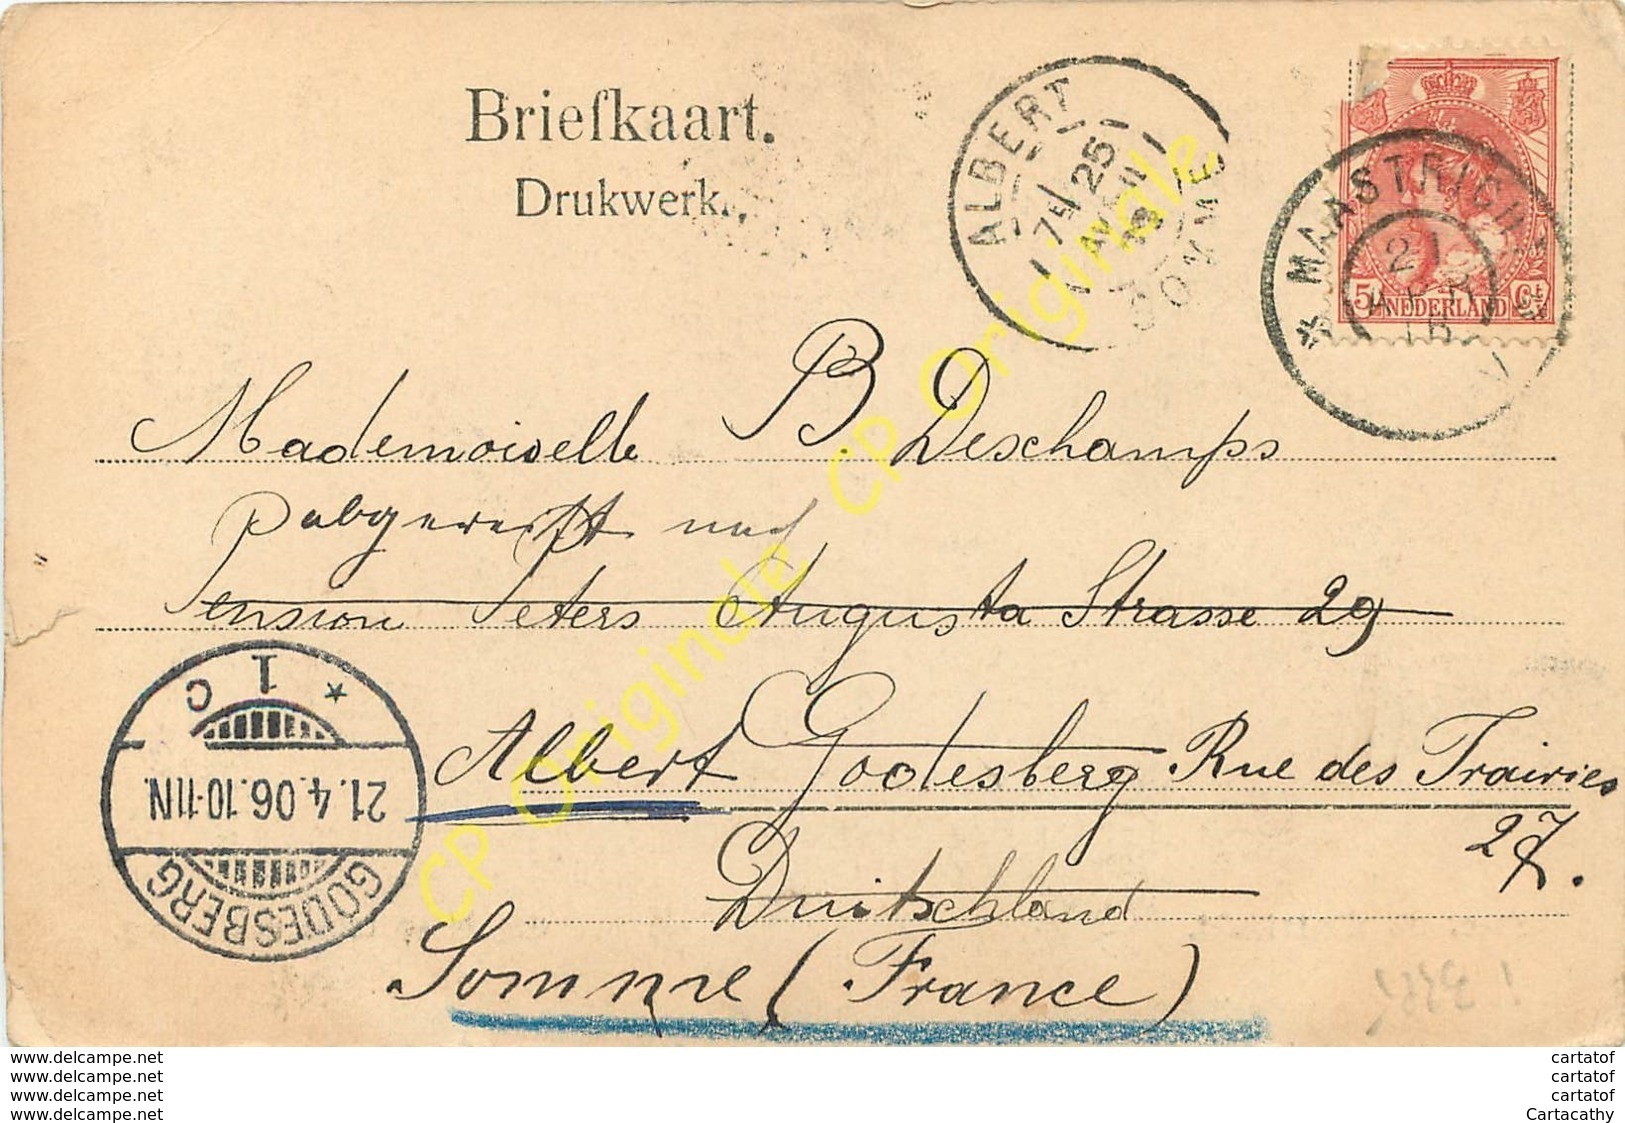 Briefkaart.
Drukwerk.
ALBERT
7 25
SOMME
* MAASTRICHT
21
APR
V
5 NEDERLAND Ct
Mademoiselle B. Deschamps
abgereist nach
Pension Peters Augusta Strasse 29
Albert Godesberg Rue des Prairies
27.
Duitschland
Somme (France)
GODESBERG
21.4.06.10-11N.
* 1 c
CP Originale CP Originale CP Originale
www.delcampe.net
www.delcampe.net
www.delcampe.net
www.delcampe.net
cartatof
cartatof
cartatof
Cartacathy